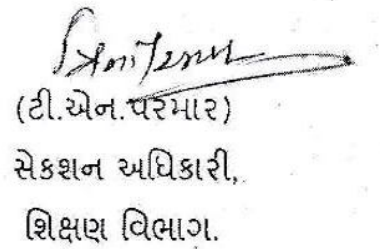 (ટી.એન.પરમાર)
સેકશન અધિકારી,
શિક્ષણ વિભાગ.